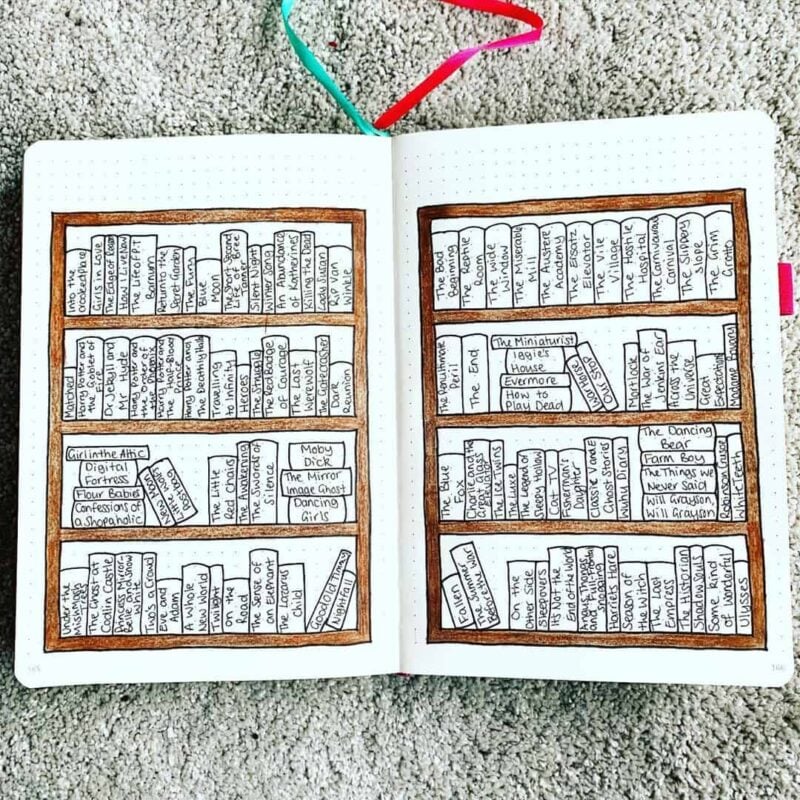 Into the
crooked Place
Girls in Love
The Edge of Reason
How I Live Now
The Life of P.T
Barnum
Return to the
Secret Garden
The Fury
Blue
Moon
The Second
Life of Bree
Tanner
Silent Night
Winter Song
An Abundance
of Katherines
Killing the Dead
Lady Susan
Rip Van
Winkle
Matched
Harry Potter and
the Goblet of
Fire
Dr Jekyll and
Mr Hyde
Harry Potter and
the Order of
the Phoenix
Harry Potter and
The Half-Blood
Prince
Harry Potter and
The Deathly Hallows
Travelling
to Infinity
Heroes
The Struggle
The Red Badge
of Courage
The Last
Werewolf
The Gatecrasher
Dark
Reunion
Girl in the Attic
Digital
Fortress
Flour Babies
Confessions of
a Shopaholic
New Moon
Little
The Little
Red Chairs
The Awakening
The Swords of
Silence
Moby
Dick
The Mirror
Image Ghost
Dancing
Girls
Under the
Mishmash
Trees
The Ghost at
Codlin Castle
Princess Mirror-
Belle and Snow
White
Two's a Crowd
Eve and
Adam
A Whole
New World
Twilight
On the
Road
The Sense of
an Elephant
The Lazarus
Child
Good Old Timmy
Nightfall
The Bad
Beginning
The Reptile
Room
The Wide
Window
The Miserable
Mill
The Austere
Academy
The Ersatz
Elevator
The Vile
Village
The Hostile
Hospital
The Carnivorous
Carnival
The Slippery
Slope
The Grim
Grotto
The Penultimate
Peril
The End
The Miniaturist
Iggie's
House
Evermore
How to
Play Dead
Last Stop
Mort
Locke
The War of
Jenkins' Ear
Across the
Universe
Great
Expectations
Madame Bovary
The Blue
Fox
Charlie and the
Great Glass
Elevator
The Ice Twins
The Luxe
The Legend of
Sleepy Hollow
Cat TV
Fisherman's
Daughter
Classic V and E
Ghost Stories
Wuhu Diary
The Dancing
Bear
Farm Boy
The Things we
Never Said
Will Grayson,
Will Grayson
Robinson Crusoe
White Teeth
Fallen
The Summer
Before the War
On the
Other Side
Sleepovers
It's Not the
End of the World
Angus, Thongs
and Full-Frontal
Snogging
Harriet's Hare
Season of
the Witch
The Last
Empress
The Historian
Shadow Souls
Some Kind
of Wonderful
Ulysses